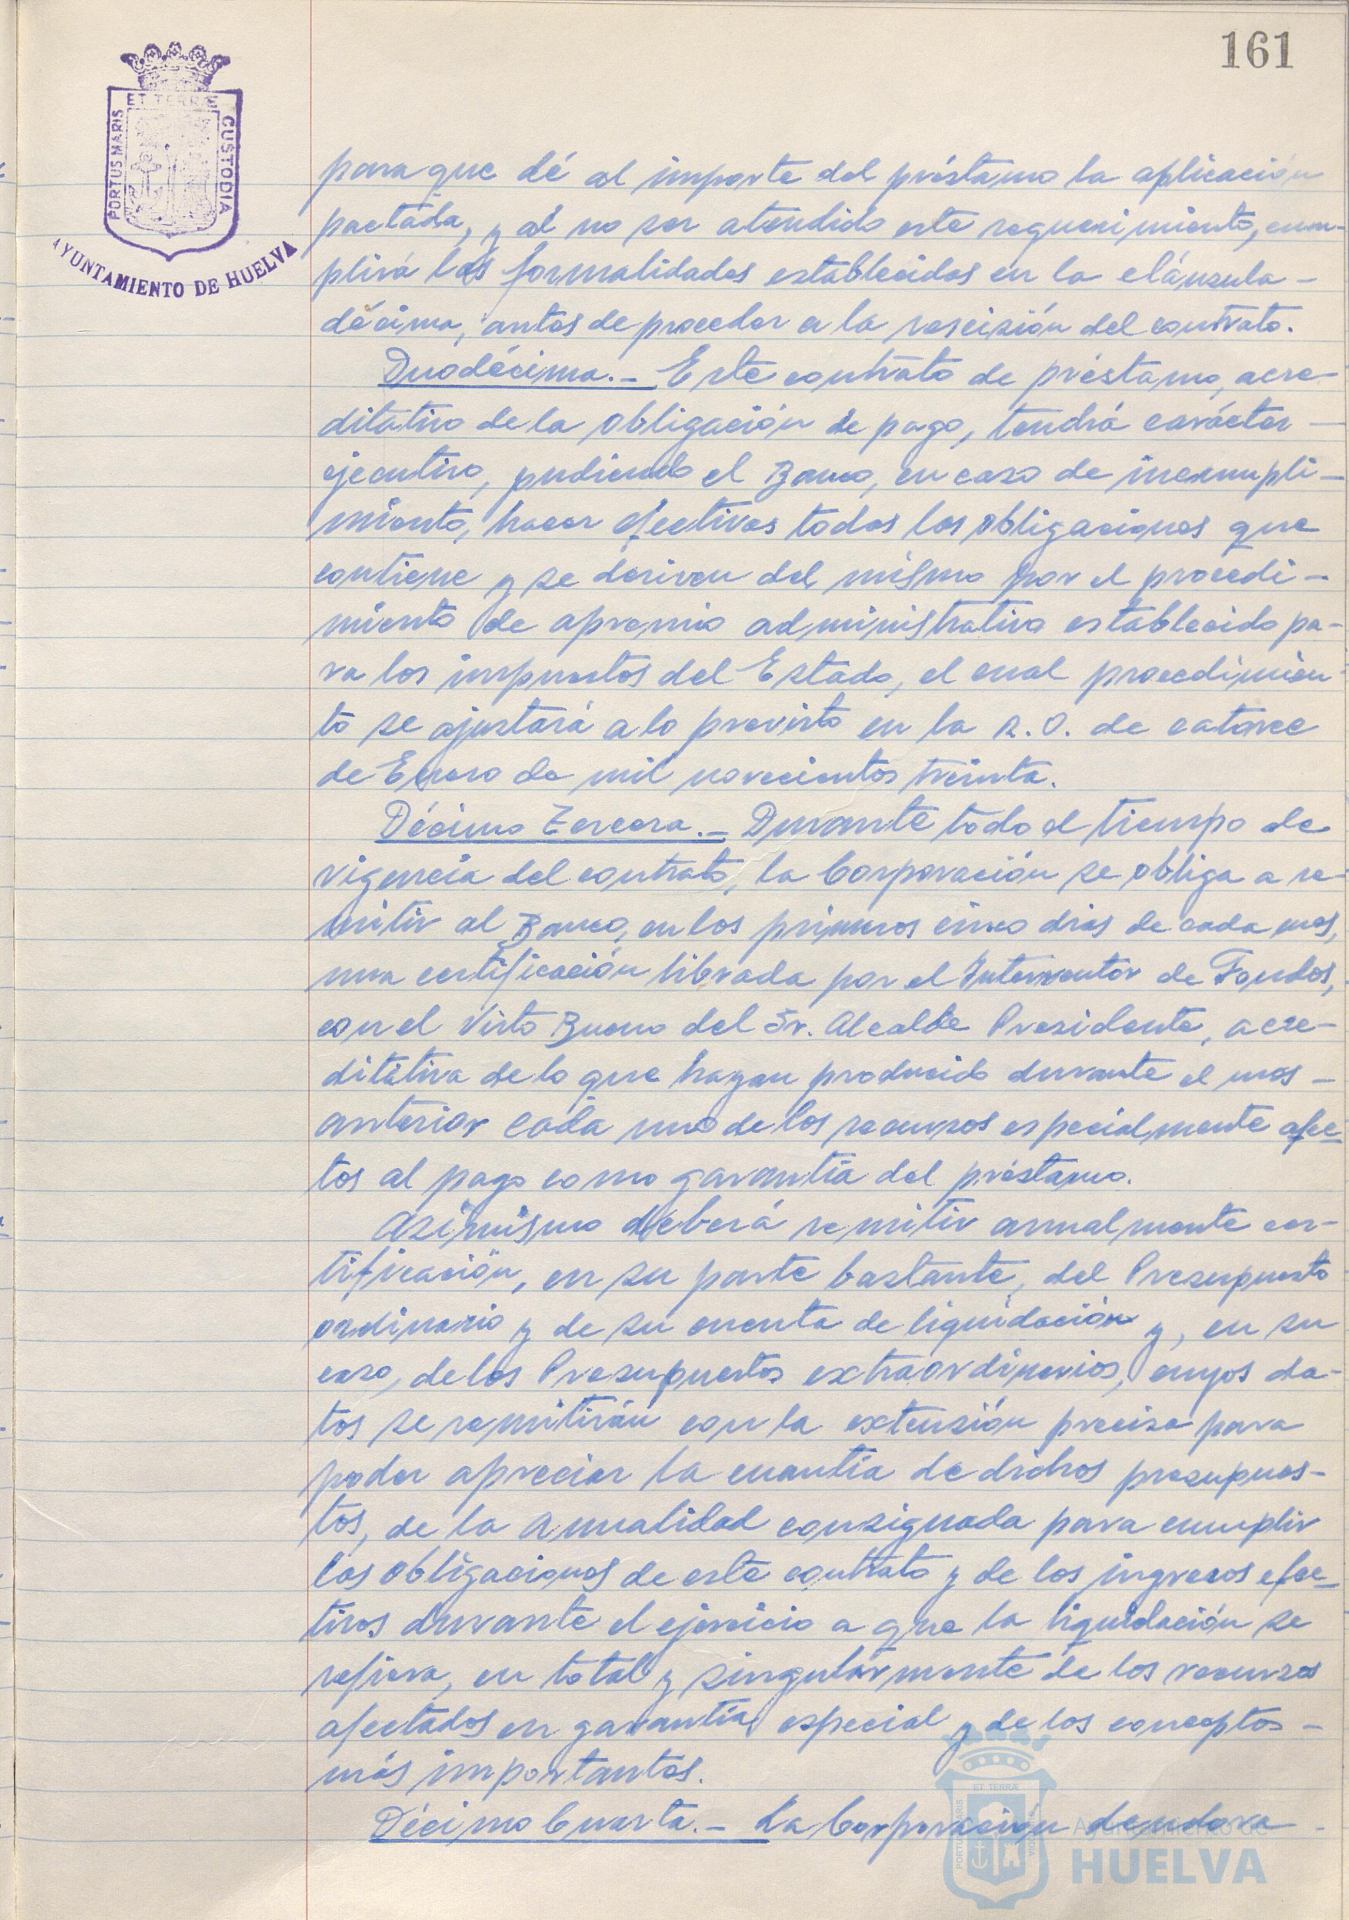 161
ET TERRÆ
PORTUS MARIS
CUSTODIA
AYUNTAMIENTO DE HUELVA
para que dé al importe del préstamo la aplicación
pactada, y al no ser atendido este requerimiento, cum-
plirá las formalidades establecidas en la cláusula -
décima, antes de proceder a la rescisión del contrato.
Duodécima.- Este contrato de préstamo, acre-
ditativo de la obligación de pago, tendrá carácter -
ejecutivo, pudiendo el Banco, en caso de incumpli-
miento, hacer efectivas todas las obligaciones que
contiene y se deriven del mismo por el procedi-
miento de apremio administrativo establecido pa-
ra los impuestos del Estado, el cual procedimien-
to se ajustará a lo previsto en la R.O. de catorce
de Enero de mil novecientos treinta.
Décimo Tercera.- Durante todo el tiempo de
vigencia del contrato, la Corporación se obliga a re-
mitir al Banco, en los primeros cinco días de cada mes,
una certificación librada por el Interventor de Fondos,
con el Visto Bueno del Sr. Alcalde Presidente, acre-
ditativa de lo que hayan producido durante el mes -
anterior cada uno de los recursos especialmente afec-
tos al pago como garantía del préstamo.
Asimismo deberá remitir anualmente cer-
tificación, en su parte bastante, del Presupuesto
ordinario y de su cuenta de liquidación y, en su
caso, de los Presupuestos extraordinarios, cuyos da-
tos se remitirán con la extensión precisa para
poder apreciar la cuantía de dichos presupues-
tos, de la anualidad consignada para cumplir
las obligaciones de este contrato y de los ingresos efec-
tivos durante el ejercicio a que la liquidación se
refiera, en total y singularmente de los recursos
afectados en garantía especial y de los conceptos -
más importantes.
Décimo Cuarta.- La Corporación deudora -
ET TERRÆ
PORTUS MARIS
CUSTODIA
Ayuntamiento de
HUELVA